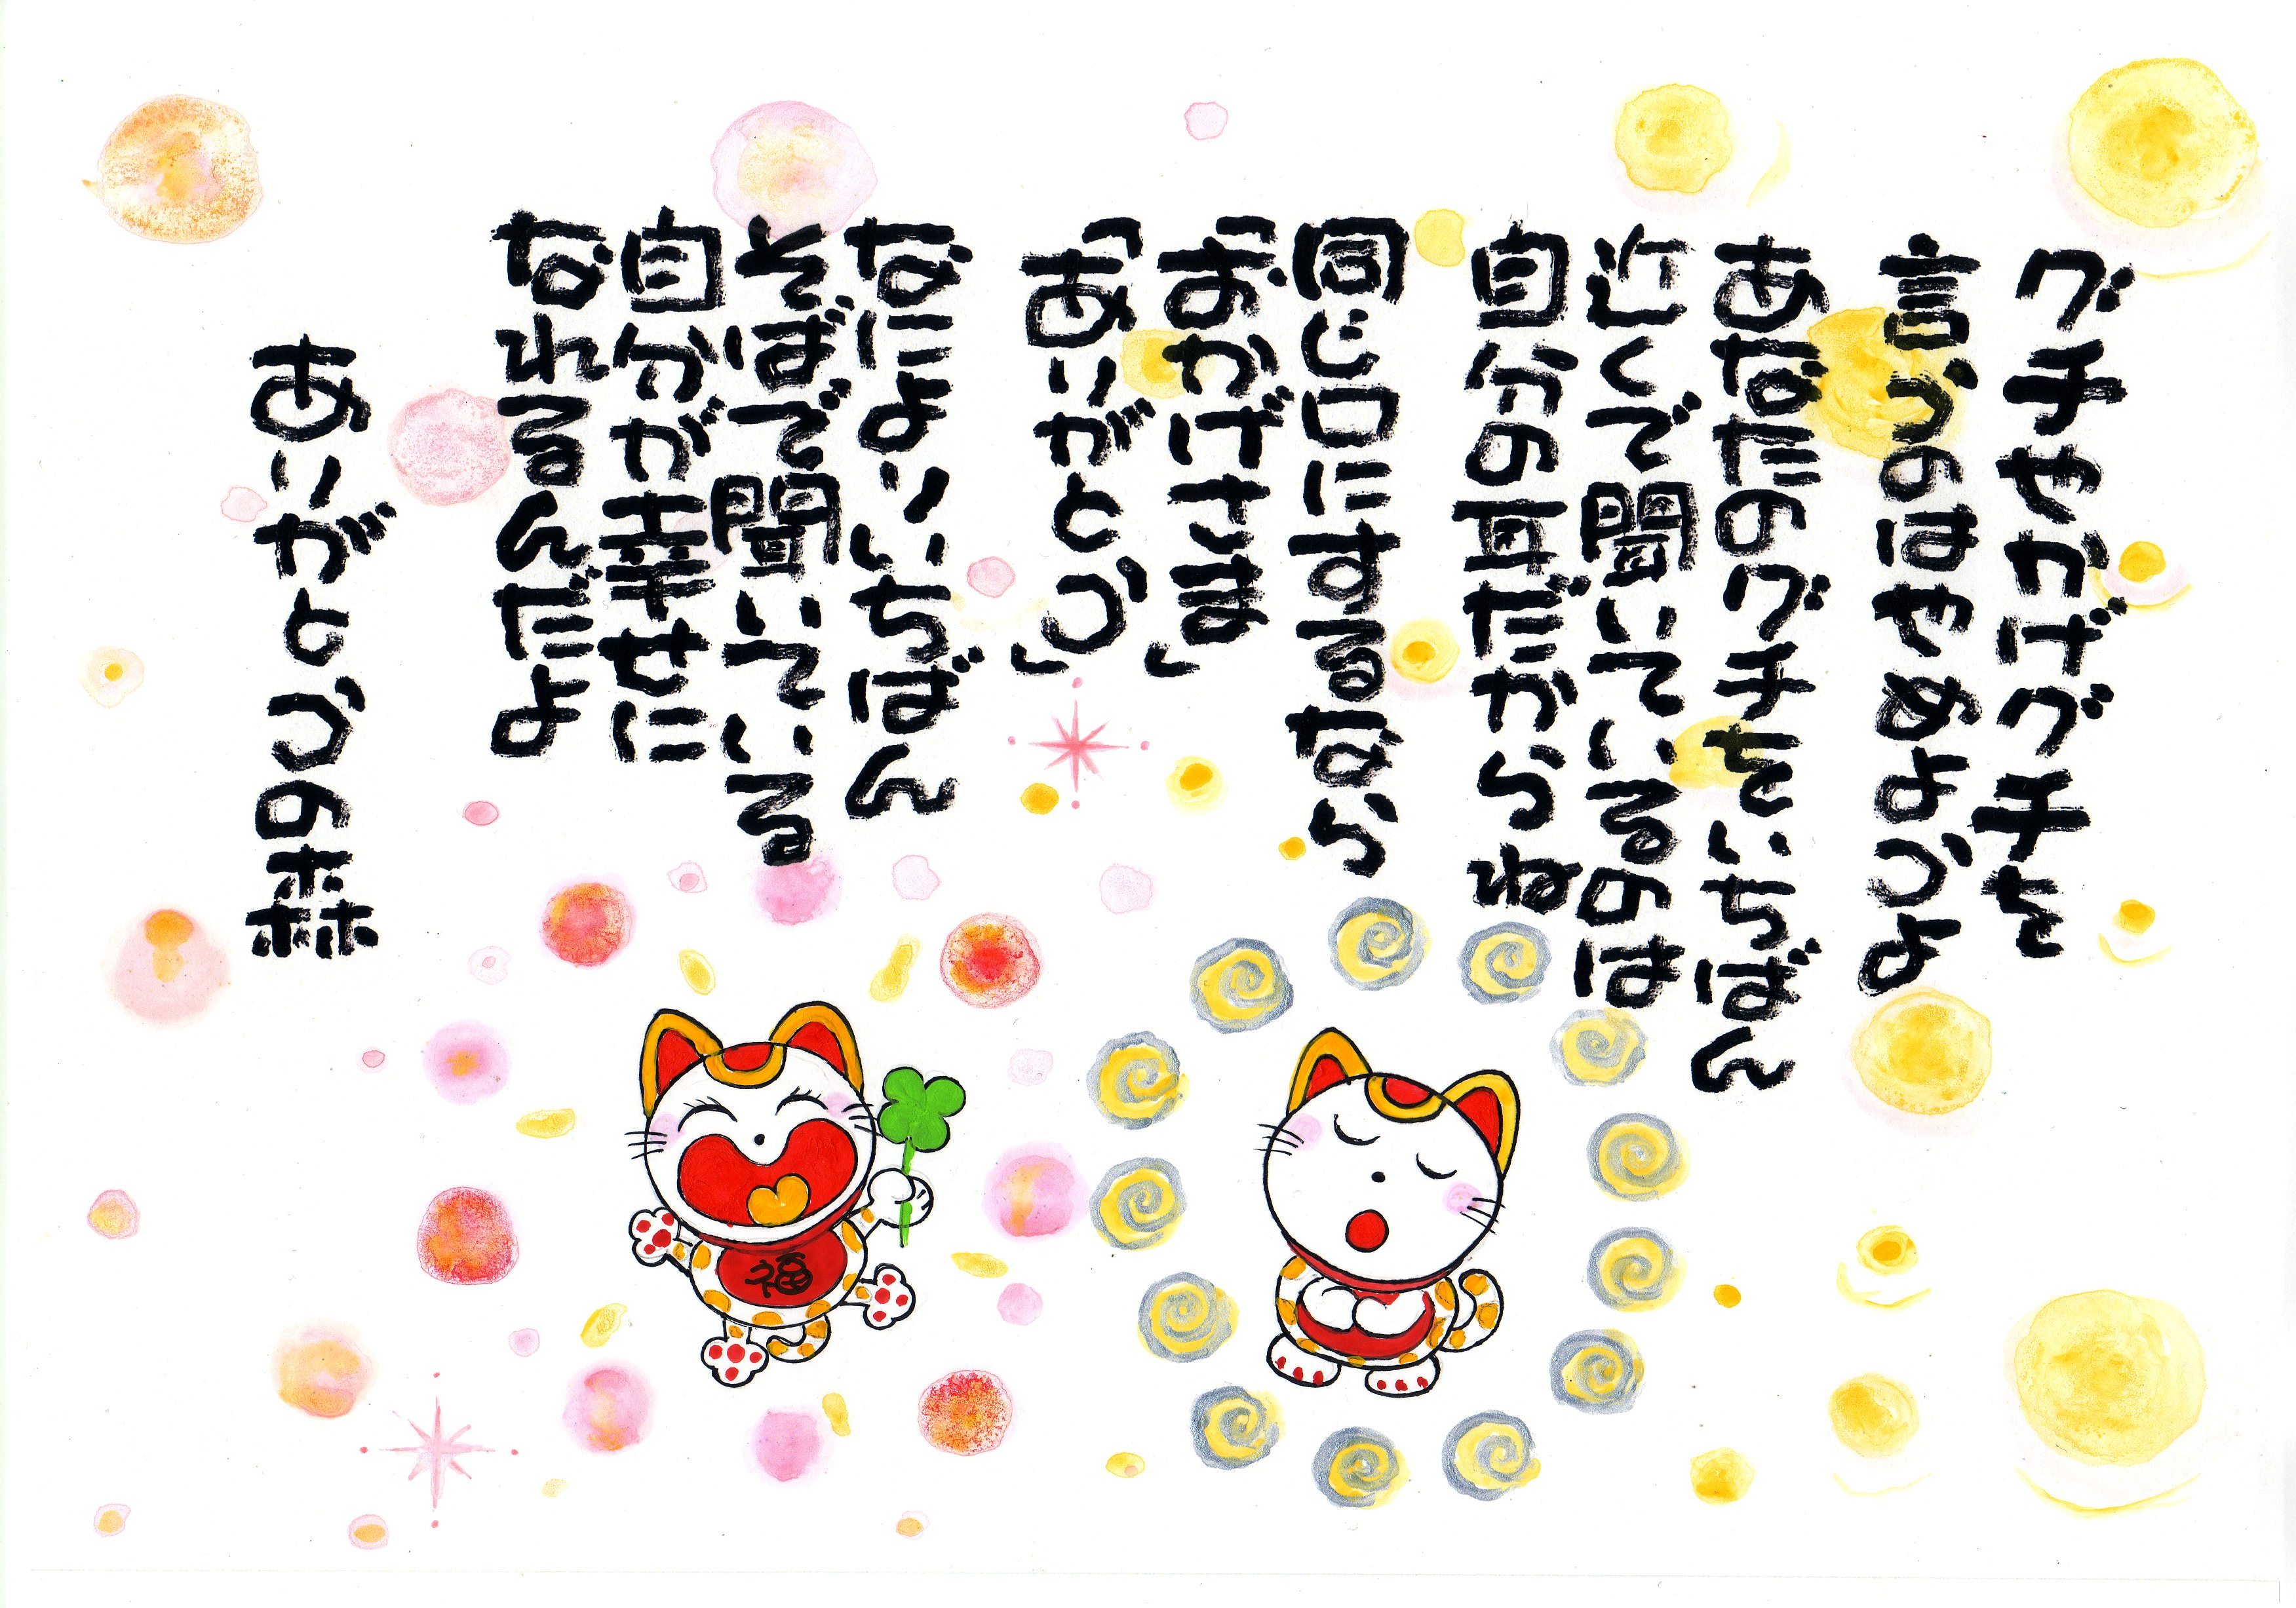 グチやかげグチを
言うのはやめようよ
あなたのグチをいちばん
近くで聞いているのは
自分の耳だからね
同じ口にするなら
「おかげさま」
「ありがとう」
なによりいちばん
そばで聞いている
自分が幸せに
なれるんだよ
ありがとうの森
福